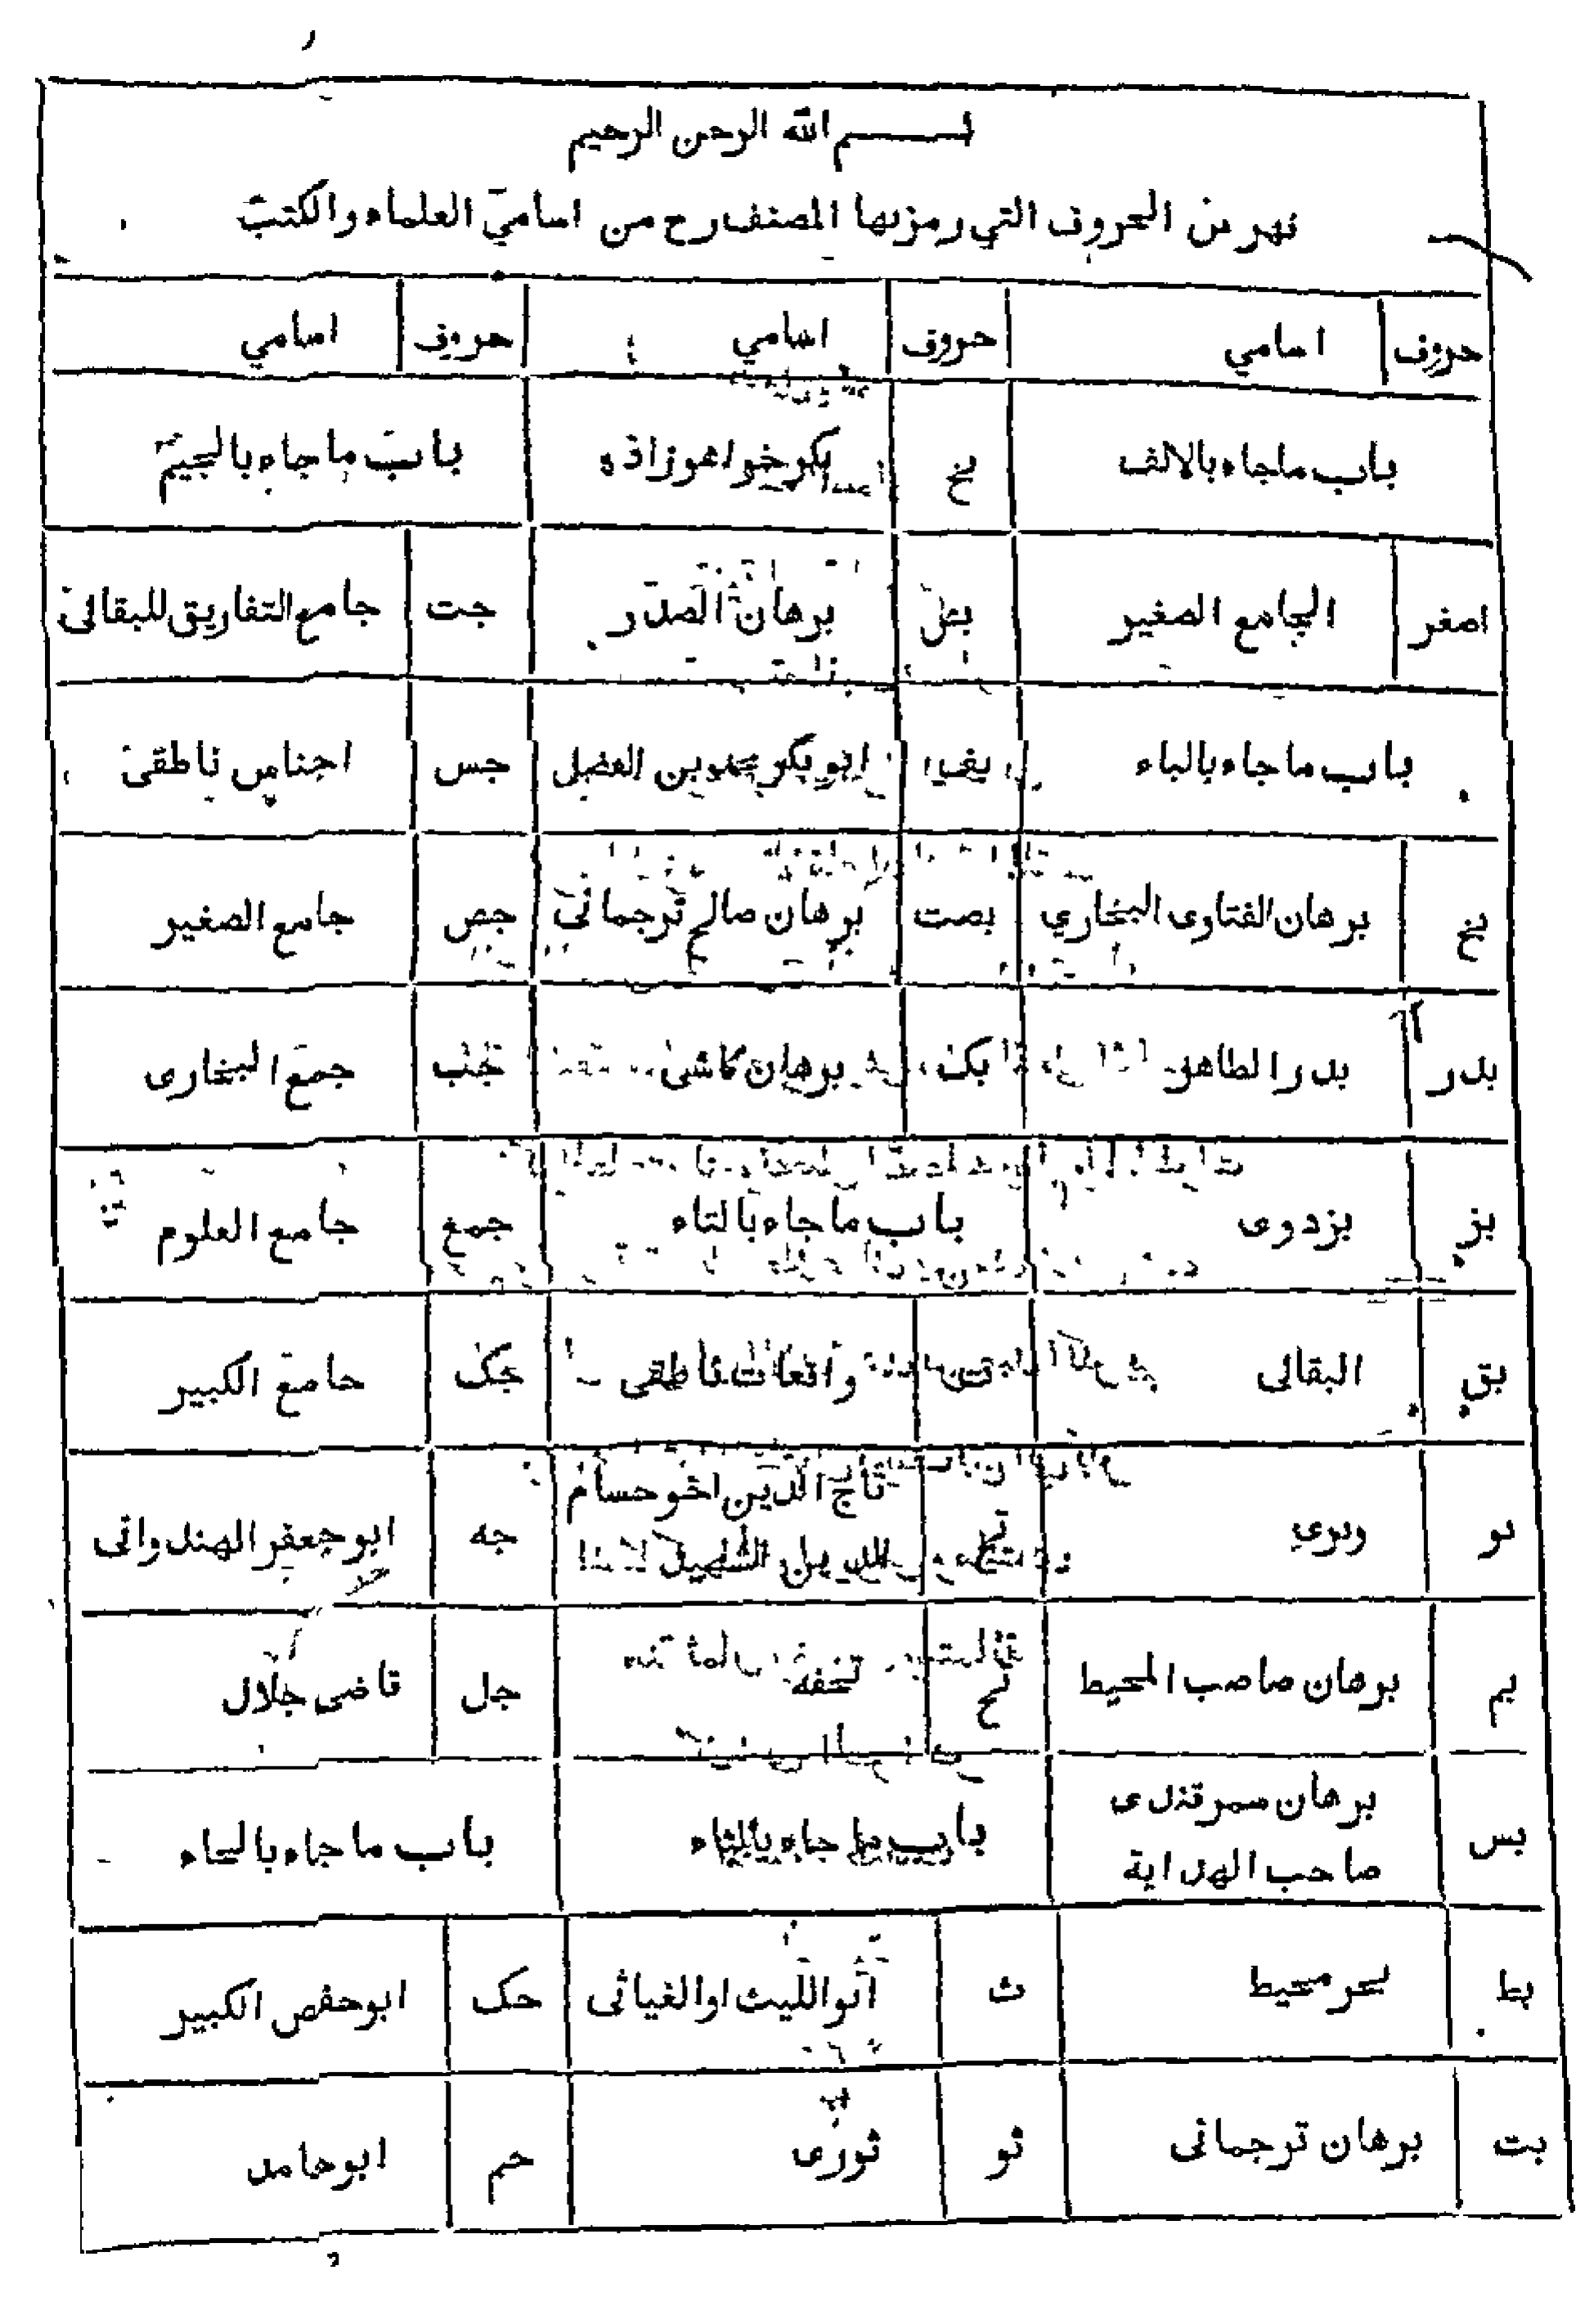 بسم الله الرحمن الرحيم
فهرس الحروف التي رمز بها المصنف رح من اسامي العلماء والكتب
حروف اسامي حروف اسامي حروف اسامي
باب ما جاء بالالف بخ بكر خواهر زاده باب ما جاء بالجيم
اصغر الجامع الصغير برهان الصدر جت جامع التفاريق للبقالى
باب ما جاء بالباء بف ابو بكر محمد بن الفضل جس اجناس ناطقى
بخ برهان الفتاوى البخاري بصت برهان صالح ترجمانى جص جامع الصغير
بدر بدر الطاهر بك برهان كاشى جمع البخارى
بز بزدوى باب ما جاء بالتاء جمع جامع العلوم
بق البقالى واقعات ناطقى جك جامع الكبير
بو وبري تاج الدين اخو حسام جه ابو جعفر الهندوانى
الدين الشهيد
بم برهان صاحب المحيط تح تحفه جل قاضى جلال
بس برهان سمرقندى باب ما جاء بالثاء باب ما جاء بالحاء
صاحب الهداية
بط بحر محيط ث ابو الليث او الغياثى حك ابو حفص الكبير
بت برهان ترجمانى ثو ثورى حم ابو حامد